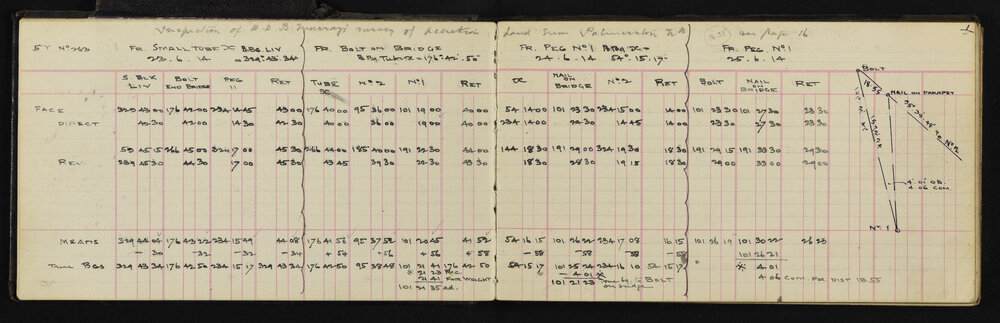 Inspection of D. D. B. Murray's survey of accretion Land from Palmerston (1855) see page 15 1
ST No 263 FR. SMALL TUBE BBG LIV FR. BOLT ON BRIDGE FR. PEG No 1 FR. PEG No 1
23. 6. 14 = 329° 43' 34" B Pg. Tube = 176° 42' 50" 24. 6. 14 54° 15' 17" 25. 6. 14
BOLT
S. BLK LIV BOLT END BRIDGE PEG 11 RET TUBE No 2 No 1 RET NAIL ON BRIDGE No 2 RET BOLT NAIL ON BRIDGE RET
NAIL ON PARAPET
FACE 329 43 00 176 42 00 234 14 45 43 00 176 40 00 95 36 00 101 19 00 40 00 54 14 00 101 23 30 234 15 00 14 00 101 23 30 101 27 30 23 30
DIRECT 42 30 42 00 14 30 42 30 40 00 36 00 19 00 40 00 234 14 00 24 30 14 45 14 00 23 30 27 30 23 30
59 45 15 266 45 00 324 17 00 45 30 266 44 00 185 40 00 191 22 30 44 00 144 18 30 191 29 00 324 19 30 18 30 191 29 15 191 33 30 29 30
REV. 239 45 30 44 30 17 00 45 30 43 45 39 30 22 30 43 30 18 30 28 30 19 15 18 30 29 00 33 00 29 00
4.01 OB.
4.06 COM.
No 1
MEANS 329 44 04 176 43 22 234 15 49 44 08 176 41 56 95 37 52 101 20 45 41 52 54 16 15 101 26 22 234 17 08 16 15 101 26 19 101 30 22 26 23
– 30 –32 –32 –34 + 54 +56 + 56 + 58 – 58 –58 –58 – 58 101 26 21
TRUE BGS 329 43 34 176 42 50 234 15 17 329 43 34 176 42 50 95 38 48 101 21 41 176 42 50 54 15 17 101 25 24 234 16 10 54 15 17 * 4.01
* 21 23 rec. – 4 01 * True bg. to BOLT 4 06 COM. FR. DIST 18.55
21 41 FOR WEIGHT 101 21 23 on bridge
101 21 35 ad.